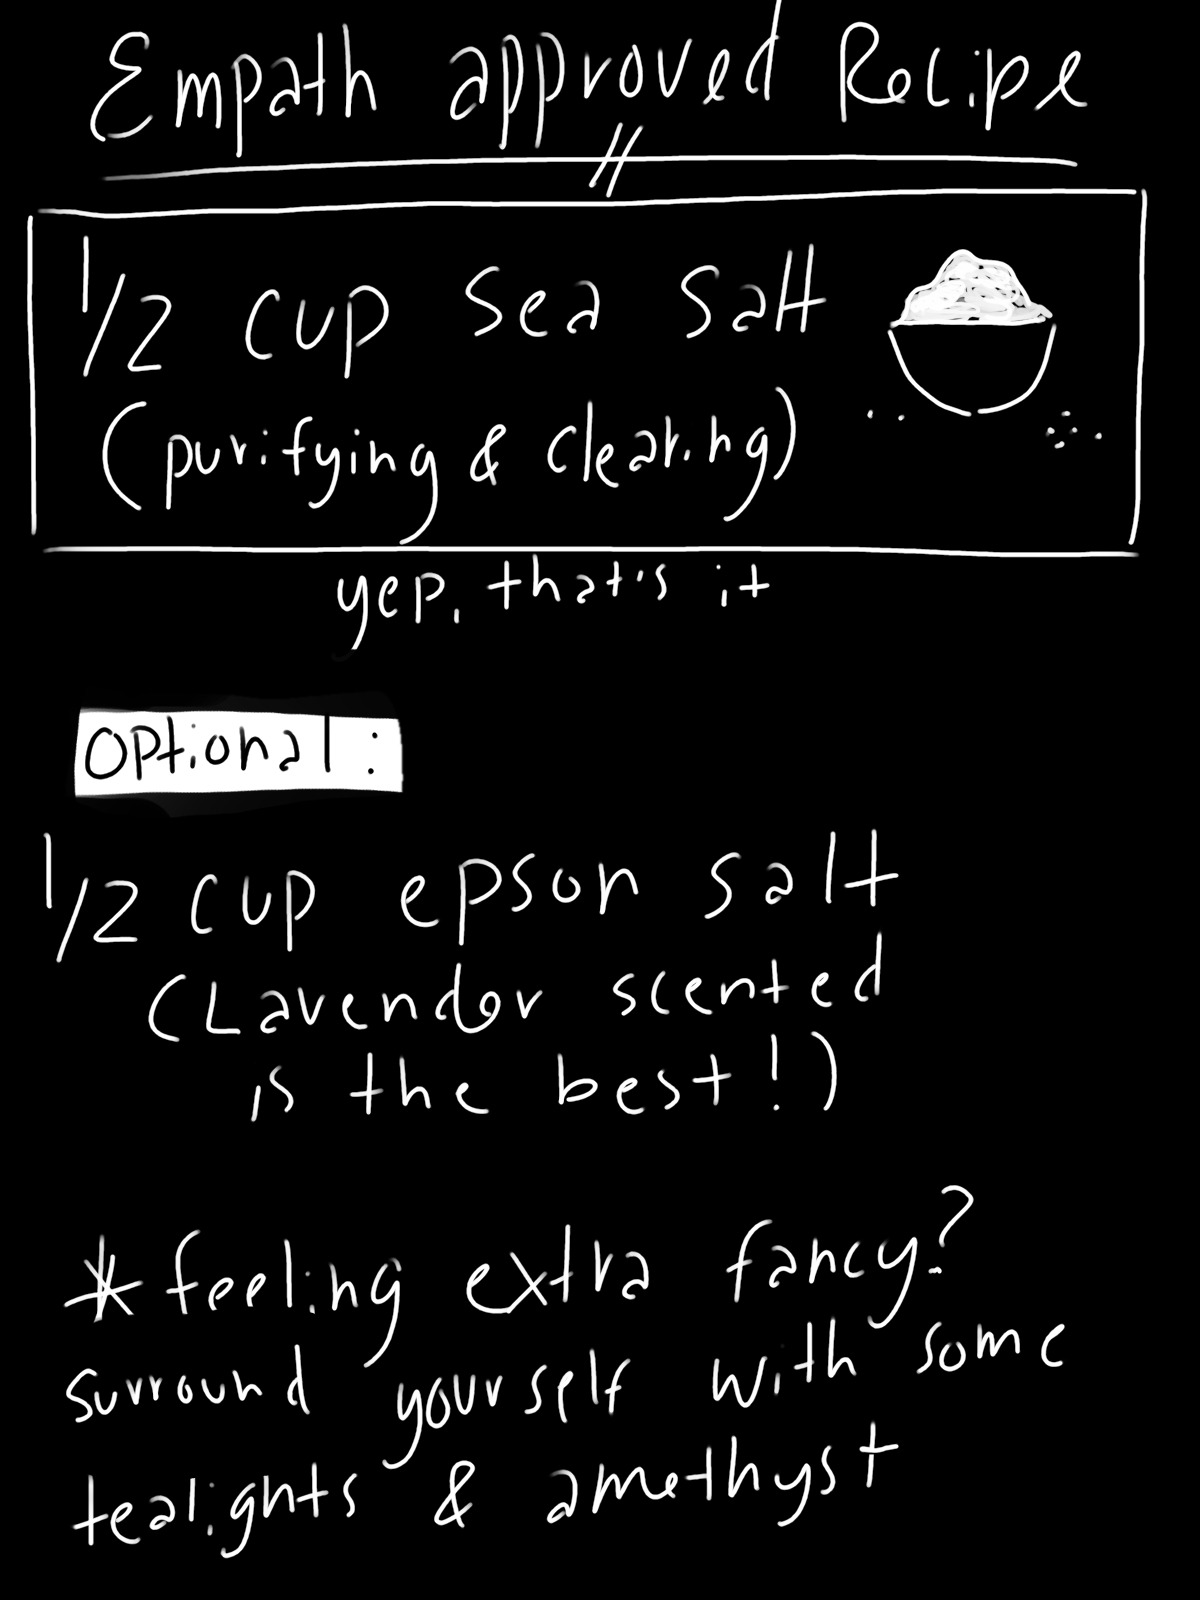 Empath approved Recipe
1/2 cup sea salt
(purifying & clearing)
yep, that's it
Optional:
1/2 cup epson salt
(Lavender scented
is the best!)
*feeling extra fancy?
surround yourself with some
tealights & amethyst